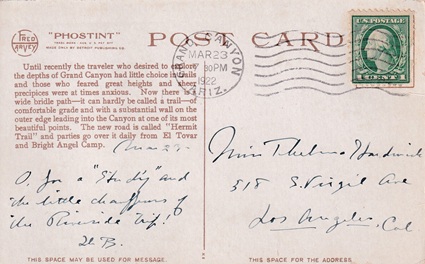 FRED HARVEY
"PHOSTINT"
POST CARD
Until recently the traveler who desired to explore
the depths of Grand Canyon had little choice in trails
and those who feared great heights and sheer
precipices were at times anxious. Now there is a
wide bridle path—it can hardly be called a trail—of
comfortable grade and with a substantial wall on the
outer edge leading into the Canyon at one of its most
beautiful points. The new road is called "Hermit
Trail" and parties go over it daily from El Tovar
and Bright Angel Camp.
GRAND CANYON
MAR 23
PM
1922
ARIZ.
U.S. POSTAGE
1 CENT 1
O, for a "Study" and
the little chauffeurs of
the Riverside trip!
Miss Thelma
518 S. Virgil Ave
Los Angeles,
Cal
THIS SPACE MAY BE USED FOR MESSAGE.
THIS SPACE IS FOR THE ADDRESS.